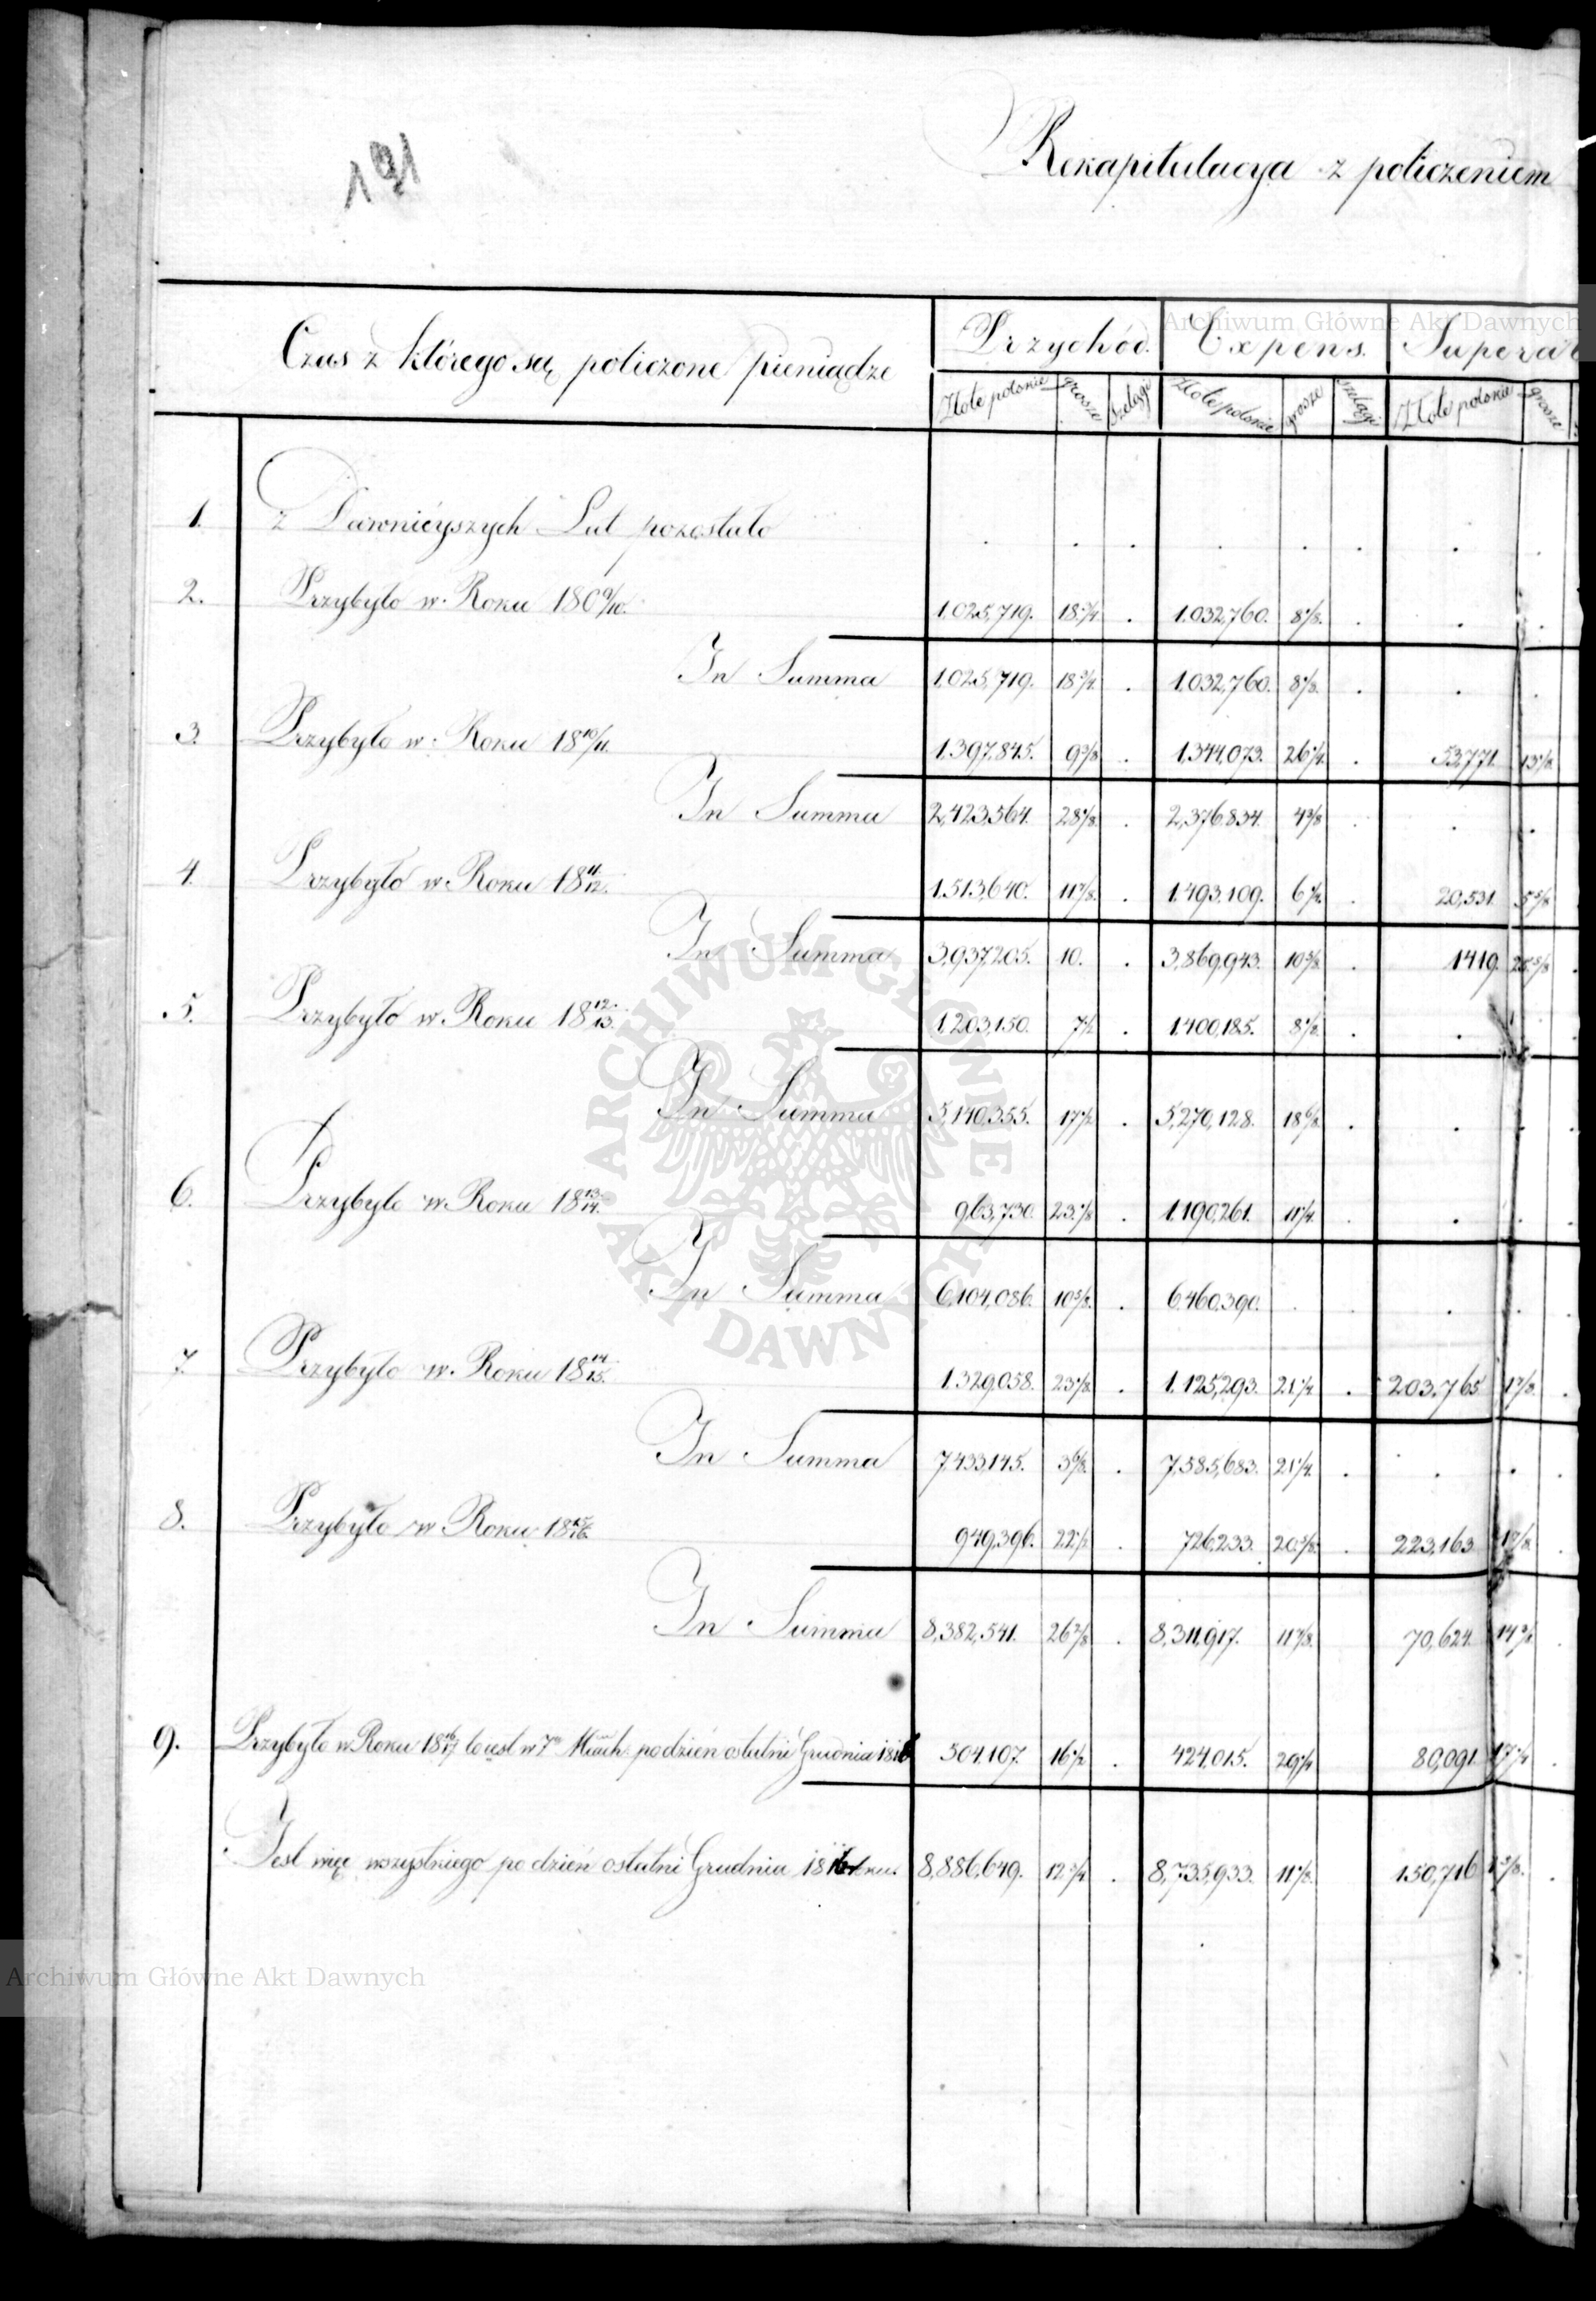 191
Rekapitulacya z policzeniem
Archiwum Główne Akt Dawnych
Czas z którego są policzone pieniądze Przychód. Expens. Supera
Złote polskie grosze Szelągi Złote polskie grosze szelągi Złote polskie grosze
1. z Dawnieyszych Lat pozostało . . . . . . . .
2. Przybyło w Roku 180 9/10. 1,025,719. 18 3/4 . 1,032,760. 8 1/8. . . .
In Summa 1,025,719. 18 3/4. . 1,032,760. 8 1/8. . . .
3. Przybyło w Roku 18 10/11. 1,397,845. 9 3/8 . 1,344,073. 26 1/4. . 53,771. 13 1/8.
In Summa 2,423,564. 28 1/8. . 2,376,834. 4 3/8 . . .
4. Przybyło w Roku 18 11/12. 1,513,640. 11 7/8. . 1,493,109. 6 1/4. . 20,531. 5 5/8
In Summa 3,937,205. 10. . 3,869,943. 10 5/8. . 1419. 25 5/8
5. Przybyło w Roku 18 12/13. 1,203,150. 7 1/2 . 1,400,185. 8 1/8. . .
In Summa 5,140,355. 17 1/2 . 5,270,128. 18 6/8. . . .
6. Przybyło w Roku 18 13/14. 963,730. 23 1/8 . 1,190,261. 11 1/4. . . .
In Summa 6,104,086. 10 5/8. . 6,460,390. . . . .
7. Przybyło w Roku 18 14/15. 1,329,058. 23 1/8. . 1,125,293. 21 1/4. . 203,765 1 7/8. .
In Summa 7,433,145. 3 6/8. . 7,585,683. 21 1/4. . . . .
8. Przybyło w Roku 18 15/16. 949,396. 22 1/2 . 726,233. 20 5/8. . 223,163 1 7/8. .
In Summa 8,382,541. 26 2/8 . 8,311,917. 11 7/8. 70,624. 14 3/8
9. Przybyło w Roku 18 16/17 to iest w 7u Miach po dzień ostatni Grudnia 1816 504,107. 16 1/2 . 424,015. 29 1/4 80,091. 17 1/4 .
Jest więc wszystkiego po dzień ostatni Grudnia 1816 8,886,649. 12 3/4 . 8,735,933. 11 1/8. 150,716 1 5/8. .
ARCHIWUM GŁÓWNE AKT DAWNYCH
Archiwum Główne Akt Dawnych